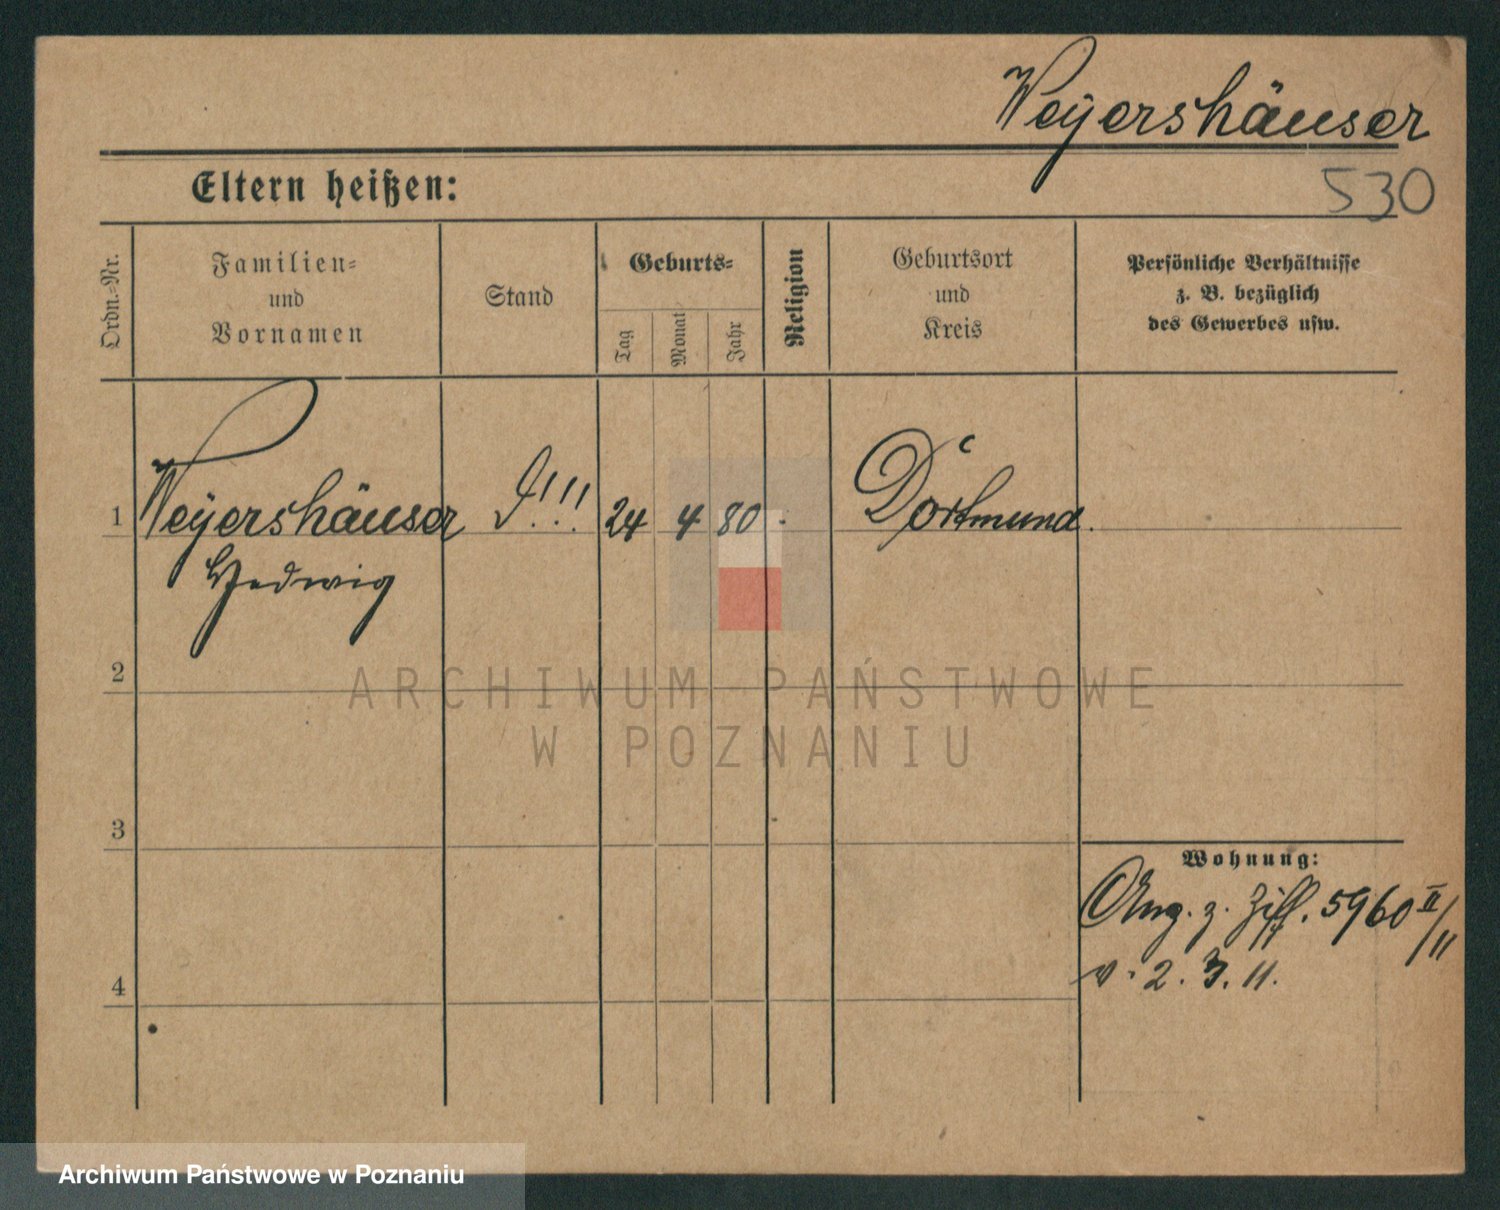 Weÿershäuser
530
Eltern heißen:
Ordn.-Nr.
Familien-
und
Vornamen
Stand
Geburts-
Tag
Monat
Jahr
Religion
Geburtsort
und
Kreis
Persönliche Verhältnisse
z. B. bezüglich
des Gewerbes usw.
1 Weÿershäuser !!! 24 4 80 Dortmund.
Hedwig
2
ARCHIWUM PAŃSTWOWE
W POZNANIU
3
Wohnung:
Ang. z. Ziff. 5960 II/11
v. 2. 3. 11.
4
Archiwum Państwowe w Poznaniu